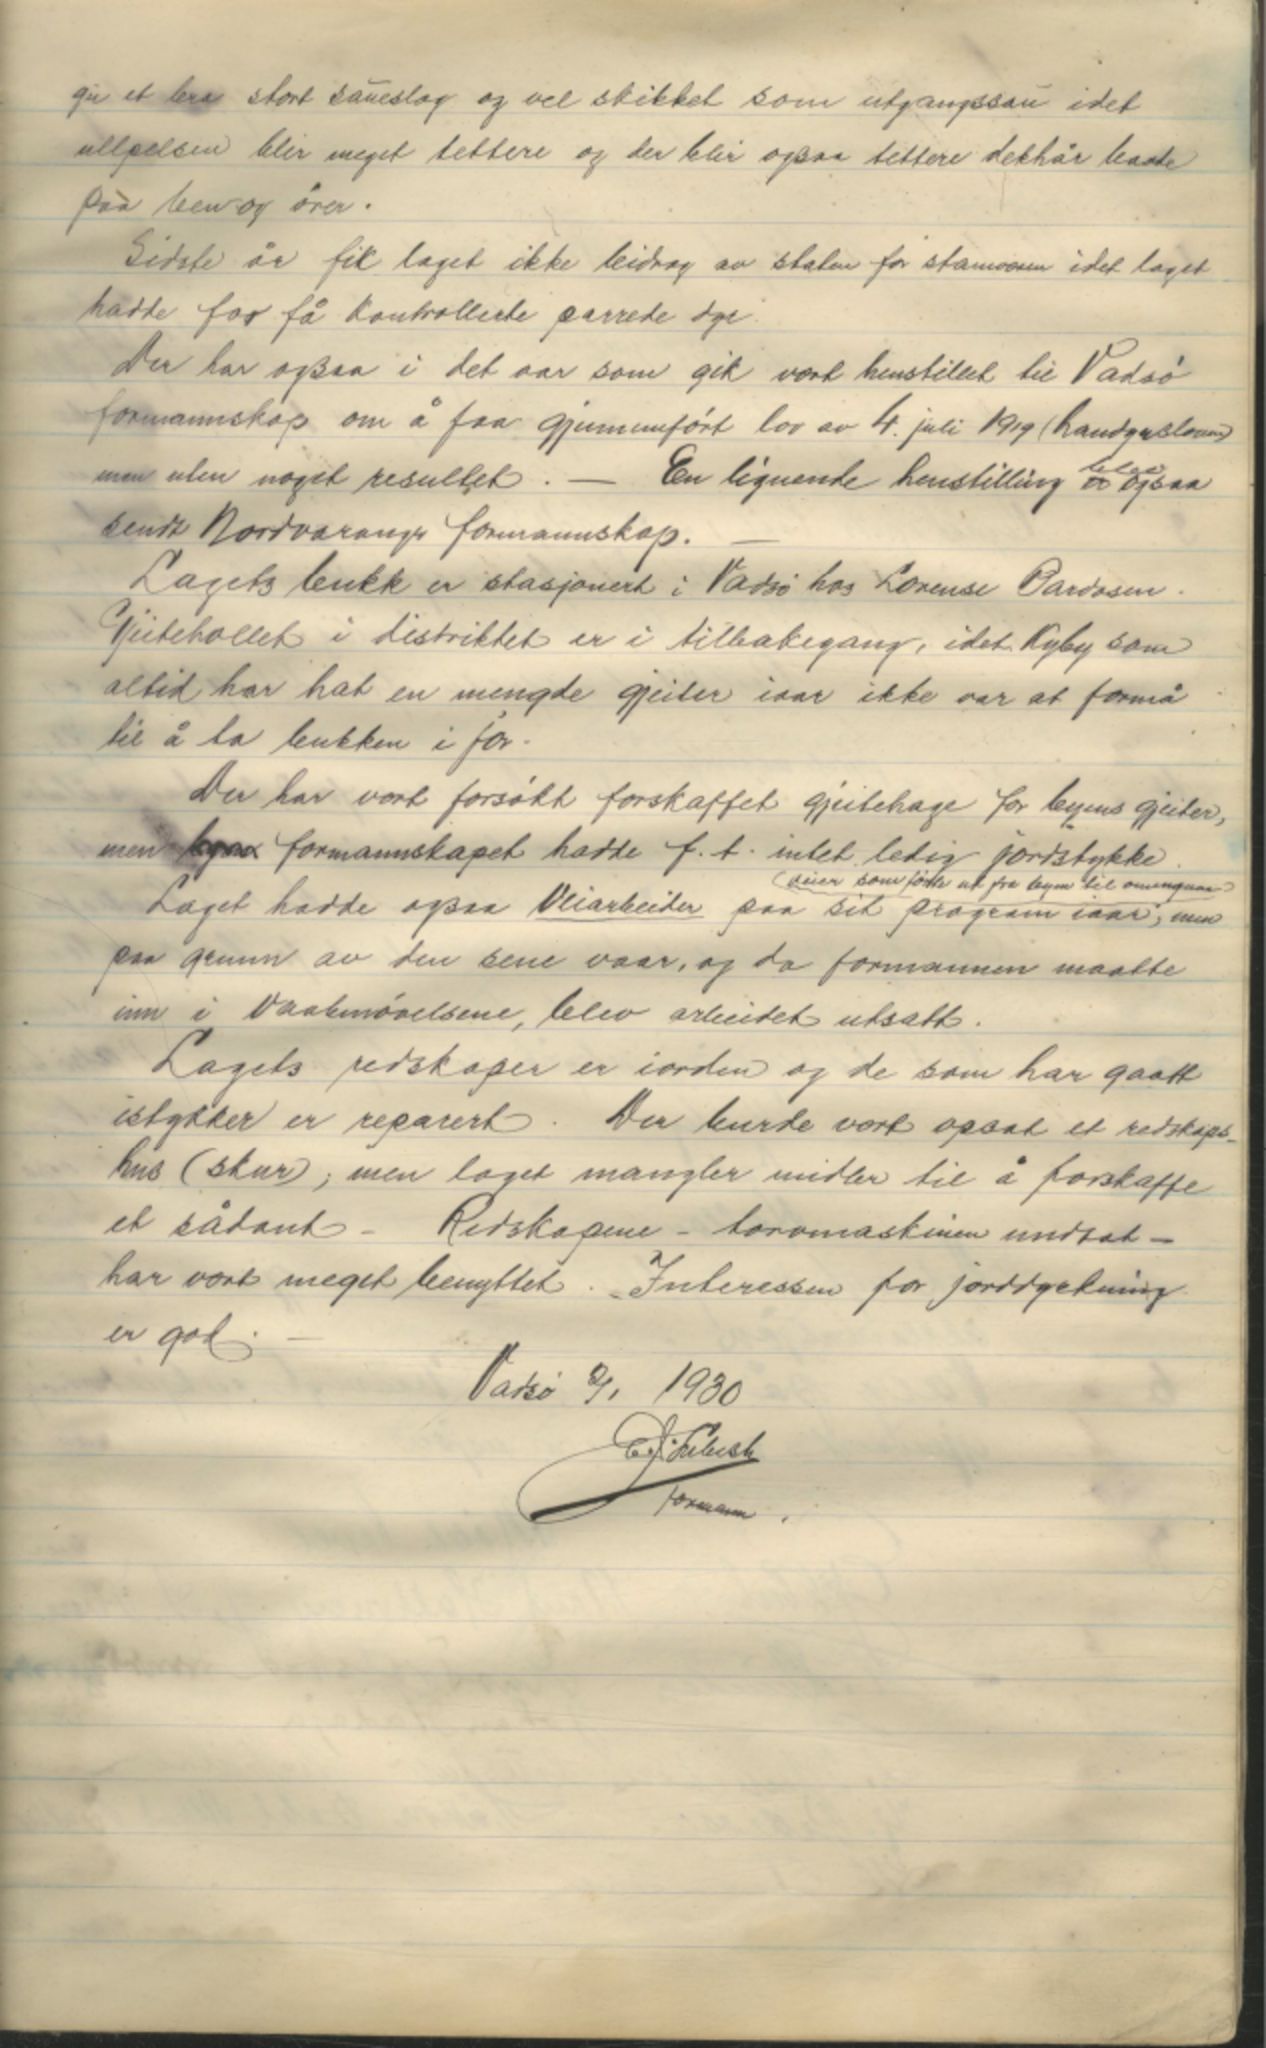 gir et bra stort saueslag og vel skikket som utgangssau idet
ullpelsen blir meget tettere og der blir ogsaa tettere dekhår baade
paa ben og ører.
Sidste år fik laget ikke bidrag av staten for stamværen idet laget
hadde for få kontrollerte parrede dyr.
Der har ogsaa i det aar som gik vært henstillet til Vadsø
formannskap om å faa gjennemført lov av 4. juli 1919 (handyrsloven)
men uten noget resultet. — En lignende henstilling blev ogsaa
sendt Nordvaranger formannskap. —
Lagets bukk er stasjonert i Vadsø hos Lorense Pardosen.
Gjeteholdet i distriktet er i tilbakegang, idet Kyby som
altid har hat en mengde gjeiter iaar ikke var at formå
til å ta bukken i fôr.
Der har vært forsøkt forskaffet gjeitehage for byens gjeiter,
men formannskapet hadde f. t. intet ledig jordstykke.
(veier som førte ut fra byen til)
Laget hadde ogsaa Veiarbeider paa sit program iaar; men
paa grunn av den sene vaar, og da formannen maatte
inn i vaabenøvelsene, blev arbeidet utsatt.
Lagets redskaper er iorden og de som har gaatt
istykker er reparert. Der burde vært opsat et redskaps-
hus (skur); men laget mangler midler til å forskaffe
et sådant – Redskapene – torvmaskinen undtat –
har vært meget benyttet. – Interessen for jorddyrkning
er god. —
Vadsø 2/1 1930
formann.